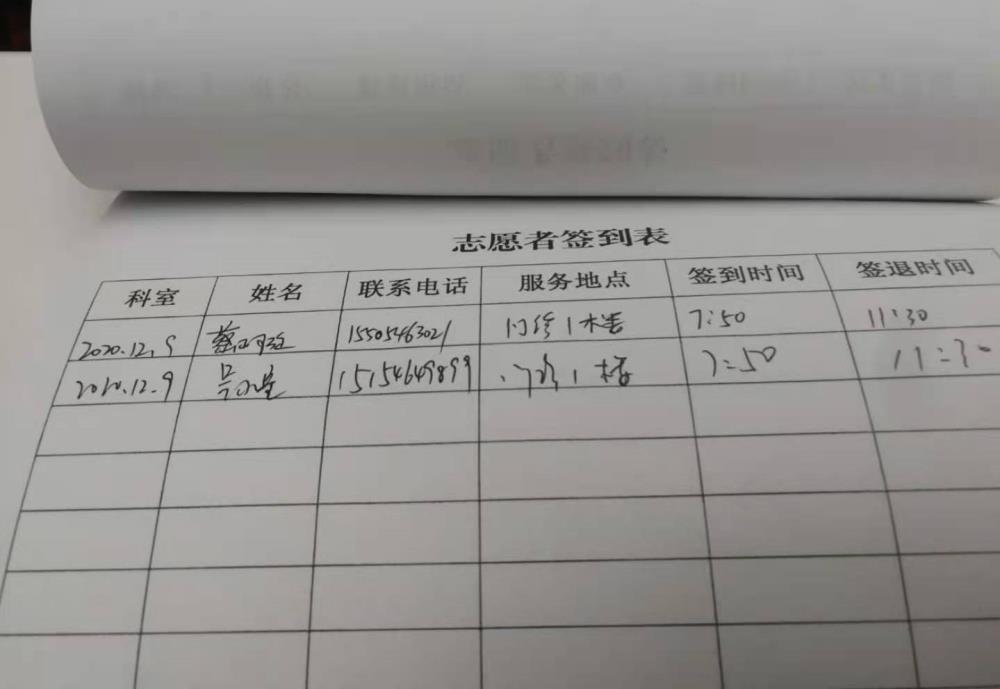 志愿者签到表
科室 姓名 联系电话 服务地点 签到时间 签退时间
2020.12.9 蔡 15505463021 门诊1楼 7:50 11:30
2020.12.9 吴 15154649899 门诊1楼 7:50 11:30